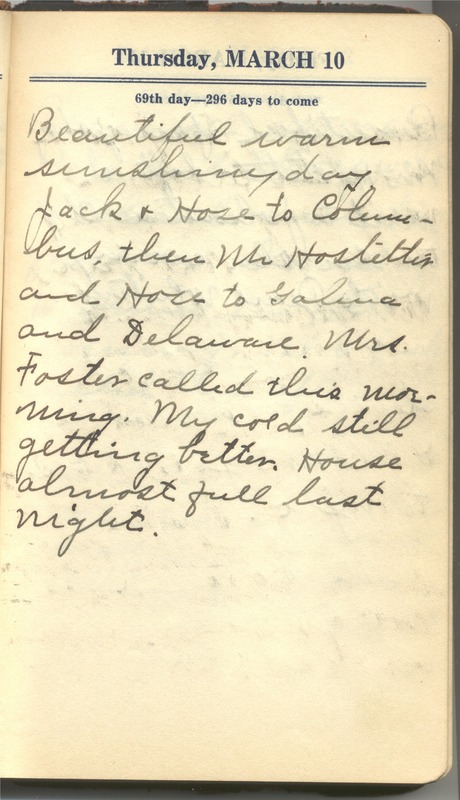 Thursday, MARCH 10
69th day—296 days to come
Beautiful warm
sunshiny day
Jack & Hose to Colum-
bus, then Mr Hostetter
and Hose to Galena
and Delaware. Mrs.
Foster called this mor-
ning. My cold still
getting better. House
almost full last
night.